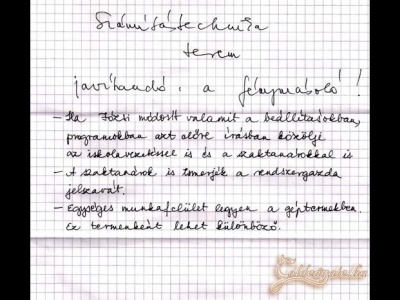 Számítástechnika
terem
javítandó: a fénymásoló!
- Ha Józsi módosít valamit a beállításokban,
programokban azt előre írásban közölje
az iskolavezetéssel is és a szaktanárokkal is
- A szaktanárok is ismerjék a rendszergazda
jelszavát.
- Egységes munkafelület legyen a géptermekben.
Ez termenként lehet különböző.